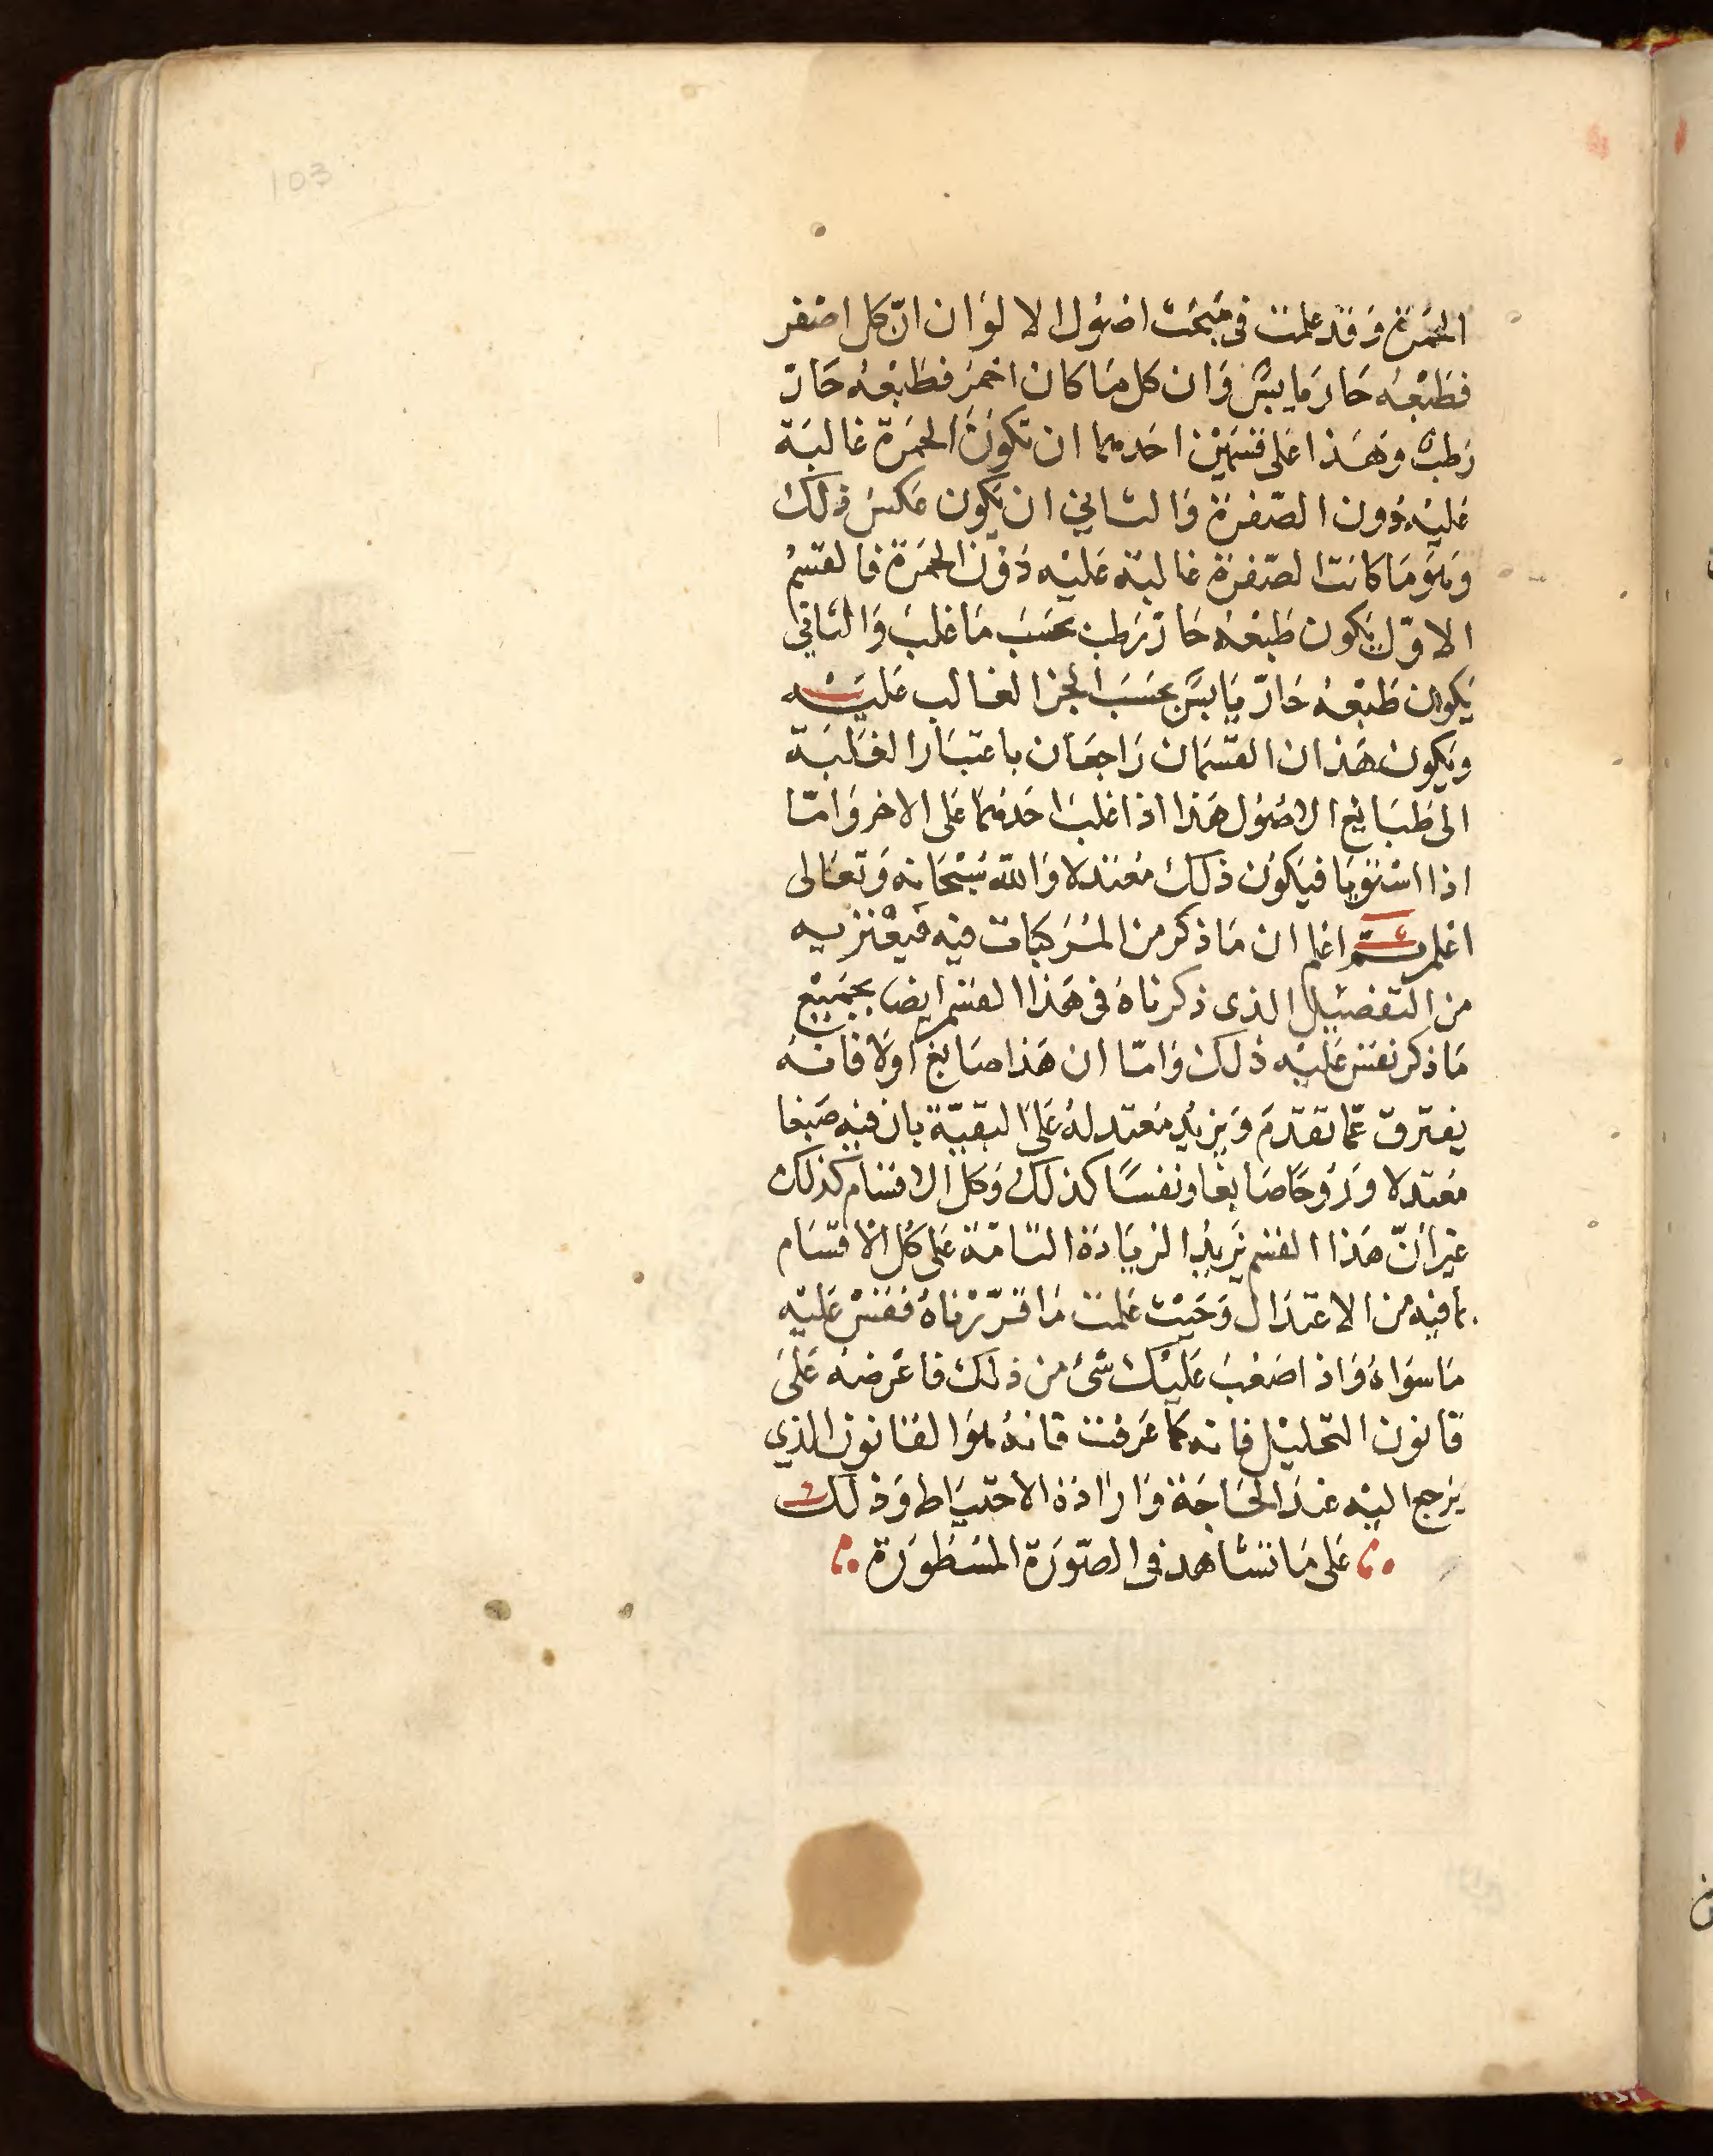 103
الحمرة وقد علمت فى مبحث اصول الالوان ان كل اصفر
فطبعه حار يابس وان كل ما كان احمر فطبعه حار
رطب وهذا على قسمين احدهما ان تكون الحمرة غالبة
عليه دون الصفرة والثاني ان يكون عكس ذلك
وهو ما كانت الصفرة غالبة عليه دون الحمرة فالقسم
الاول يكون طبعه حار رطب بحسب ما غلب والثاني
يكون طبعه حار يابس بحسب الجز الغالب عليه
ويكون هذان القسمان راجعان باعتبار الغلبة
الى طبائع الاصول هذا اذا غلب احدهما على الاخر واما
اذا استويا فيكون ذلك معتدلا والله سبحانه وتعالى
اعلم ثم اعلم ان ما ذكر من المركبات فيه فيعتريه
من التفصيل الذى ذكرناه فى هذا القسم ايضا بجميع
ما ذكر نقس عليه ذلك واما ان هذا صابغ اولا فانه
يفترق عما تقدم ويزيد معتدله على البقية بان فيه صبغا
معتدلا وروحا صابغا ونفسا كذلك وكل الاقسام كذلك
غير أن هذا القسم يزيد الزيادة التامة على كل الاقسام
بما فيه من الاعتدال وحيث علمت ما قررناه فقس عليه
ما سواه واذا صعب عليك شئ من ذلك فاعرضه على
قانون التحليل فانه كما عرفت فانه هو القانون الذي
يرجع اليه عند الحاجة وارادة الاحتياط وذلك
على ما تشاهد فى الصورة المسطورة